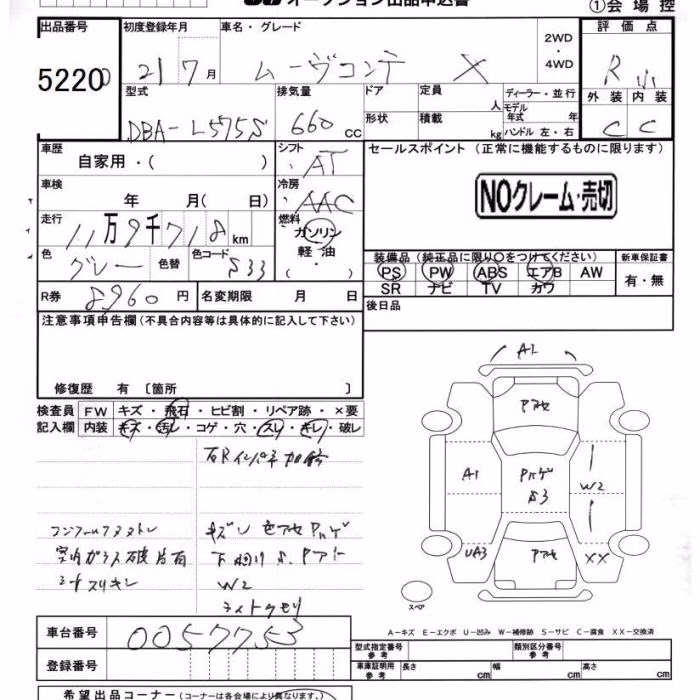 オークション出品申込書
①会場控
出品番号 初度登録年月 車名・グレード 2WD・4WD 評価点
52200 21 7月 ムーヴコンテ X R
型式 排気量 ドア 定員 人 ディーラー・並行 外装 内装
DBA-L575S 660 cc 形状 積載 kg モデル年式 年 ハンドル 左・右 C C
車歴 自家用・( ) シフト AT セールスポイント (正常に機能するものに限ります)
車検 年 月( 日) 冷房 AAC NOクレーム・売切
走行 11万9千718km 燃料 ガソリン 軽油・( )
色 グレー 色替 色コード S33
装備品(純正品に限り〇をつけてください) 新車保証書
PS PW ABS エアB AW 有・無
SR ナビ TV カワ
R券 8960円 名変期限 月 日 後日品
注意事項申告欄(不具合内容等は具体的に記入して下さい)
修復歴 有 〔箇所 〕
検査員記入欄 FW キズ・飛石・ヒビ割・リペア跡・×要
内装 キズ・汚レ・コゲ・穴・スレ・キレ・破レ
A1
A1
W2
UA3
XX
スペア
室内ガラス破片有
シートスリキレ
W2
ライトクモリ
A-キズ E-エクボ U-凹み W-補修跡 S-サビ C-腐食 XX-交換済
車台番号 0057753
登録番号
型式指定番号 参考 類別区分番号 参考
車庫証明用 参考 長さ cm 幅 cm 高さ cm
希望出品コーナー(コーナーは各会場により異なります。)